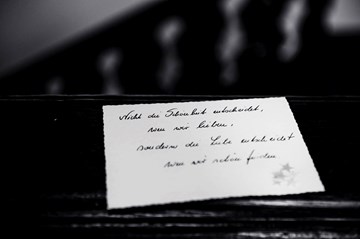 Nicht die Schönheit entscheidet,
wen wir lieben,
sondern die Liebe entscheidet
wen wir schön finden